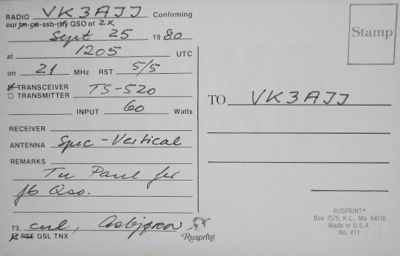 RADIO VK3AJJ Confirming
our fm-cw-ssb-rtty QSO of 2x
Sept 25 1980
at 1205 UTC
on 21 MHz RST 5/5
TRANSCEIVER TS-520
TRANSMITTER
INPUT 60 Watts
RECEIVER
ANTENNA Spec-Vertical
REMARKS Tu Paul for
fb Qso.
73, cul,
PSE QSL TNX
Rusprint
Stamp
TO VK3AJJ
RUSPRINT®
Box 7575, K.C. Mo. 64116
Made in U.S.A
No. 411